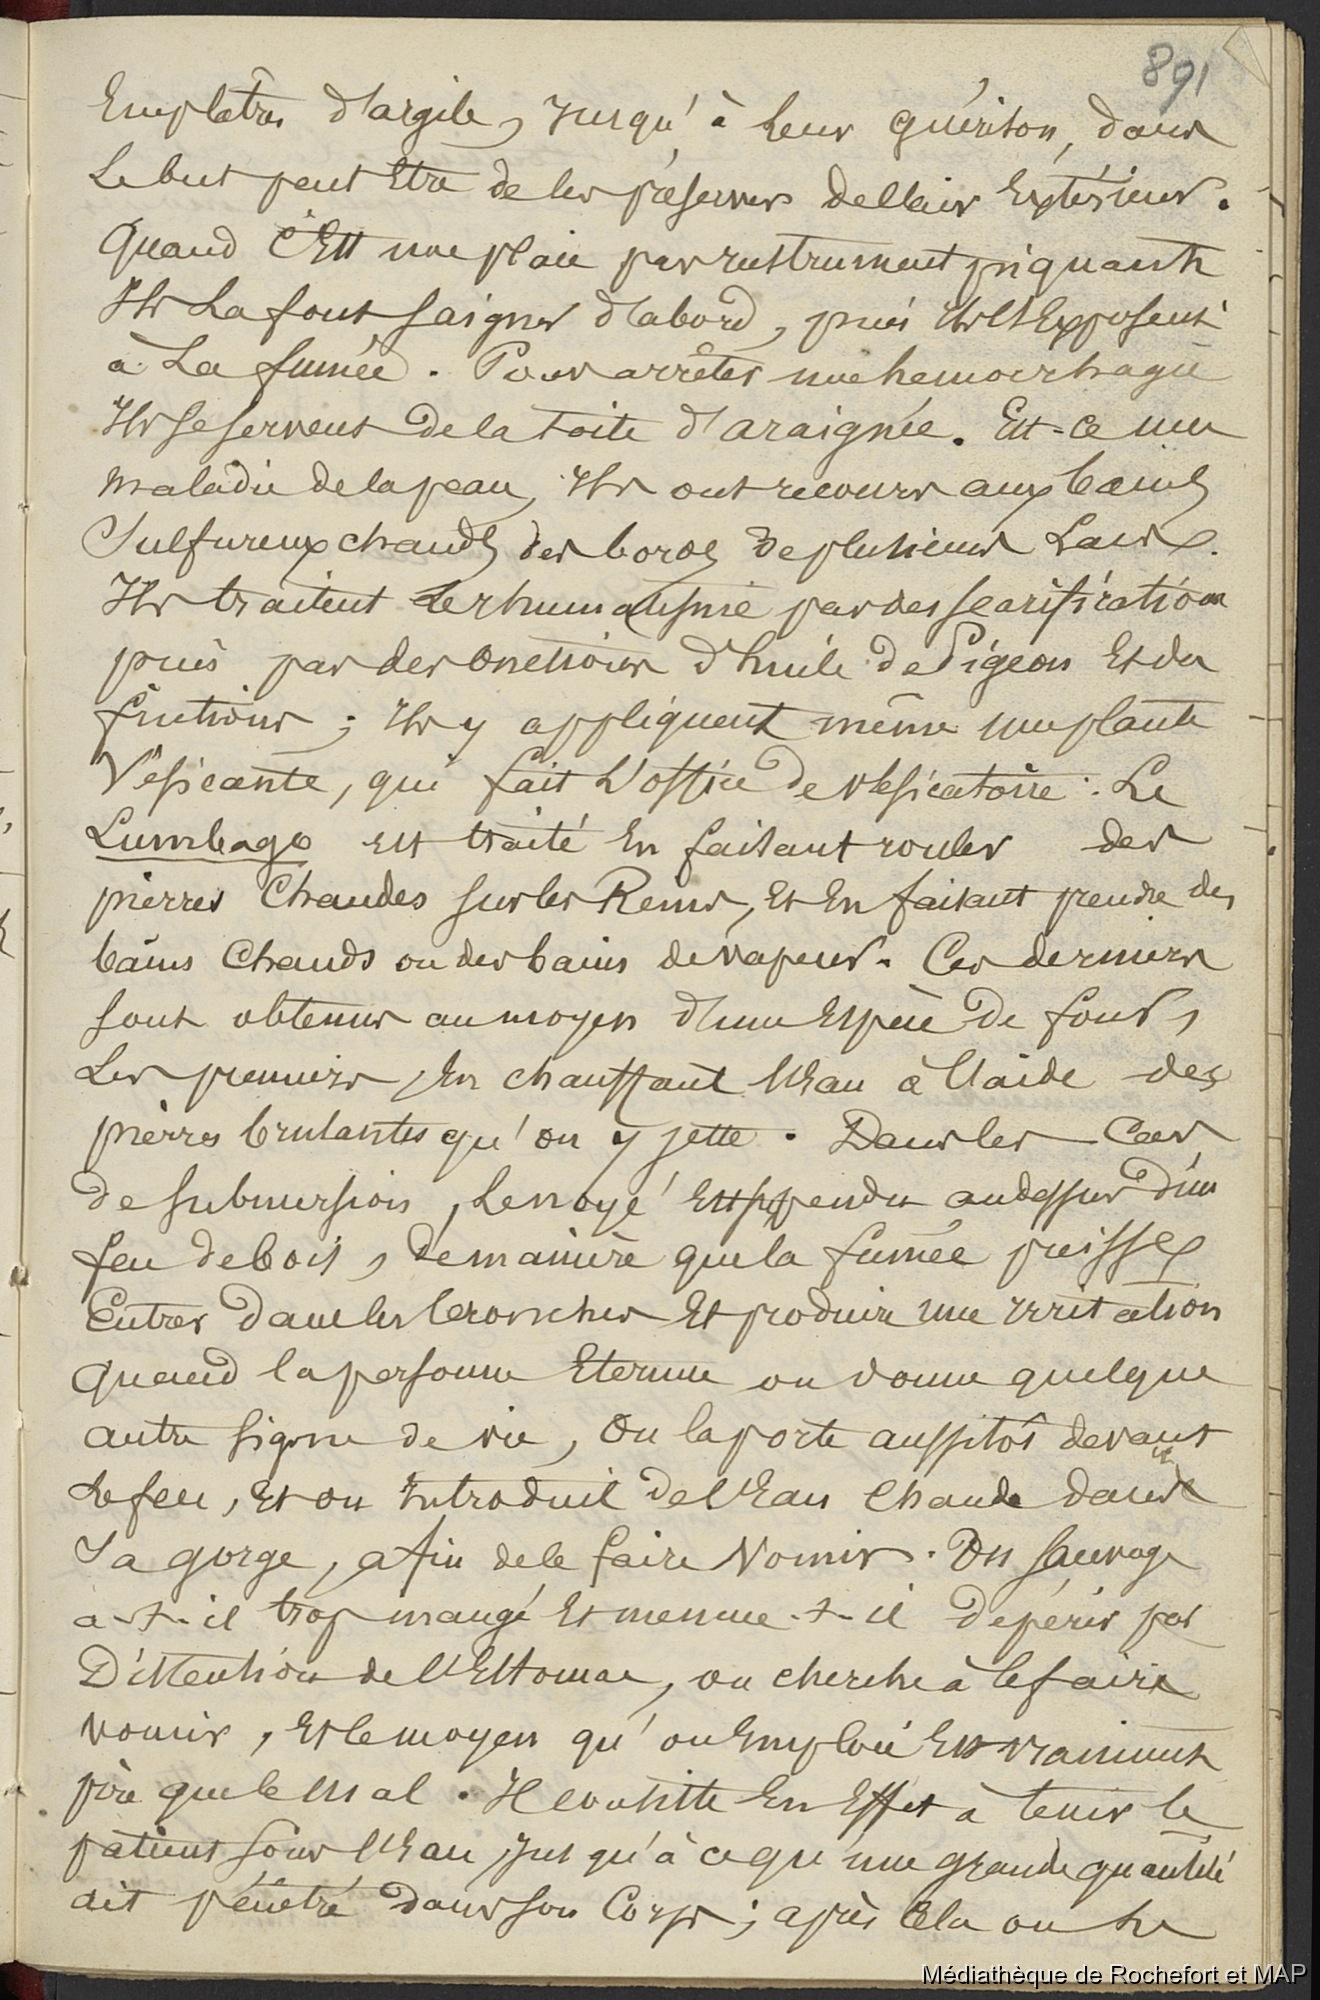 891
Emplâtres d'argile, Jusqu'à leur guérison, dans
Le but peut Etre de les préserver de l'air Extérieur.
Quand C'Est une plaie par instrument piquant
Ils La font saigner d'abord, puis Ils l'Exposent
à La fumée. Pour arrêter une hemorrhagie
Ils se servent de la toile d'araignée. Est-ce une
maladie de la peau, Ils ont recours aux bains
Sulfureux chauds des bords de plusieurs Lacs.
Ils traitent Le rhumatisme par des scarifications
puis par des onctions d'huile de Pigeon Et des
frictions; Ils y appliquent même une plante
Vésicante, qui fait L'office de vésicatoire. Le
Lumbago est traité En faisant rouler des
pierres Chaudes sur les Reins, Et En faisant prendre des
bains Chauds ou des bains de vapeur. Ces derniers
sont obtenus au moyen d'une Espèce de four,
Les premiers, En chauffant l'Eau à l'aide des
pierres brulantes qu'on y jette. Dans les Cas
de submersion, Le noyé Est suspendu au dessus d'un
feu de bois, de manière que la fumée puisse
Entrer dans les bronches Et produire une irritation
Quand la personne Eternue ou donne quelque
autre signe de vie, On la porte aussitôt devant
Le feu, Et on Introduit de l'Eau Chaude dans
Sa gorge, afin de le faire Vomir. Un Sauvage
a-t-il trop mangé Et menace-t-il dépérir par
Distention de l'Estomac, on cherche à le faire
vomir, Et le moyen qu'on Emploie Est vraiment
pire que le mal. Il consiste En Effet à tenir le
patient sous l'Eau, Jusqu'à ce qu'une grande quantité
ait pénétré dans son Corps; après Cela on le
Médiathèque de Rochefort et MAP